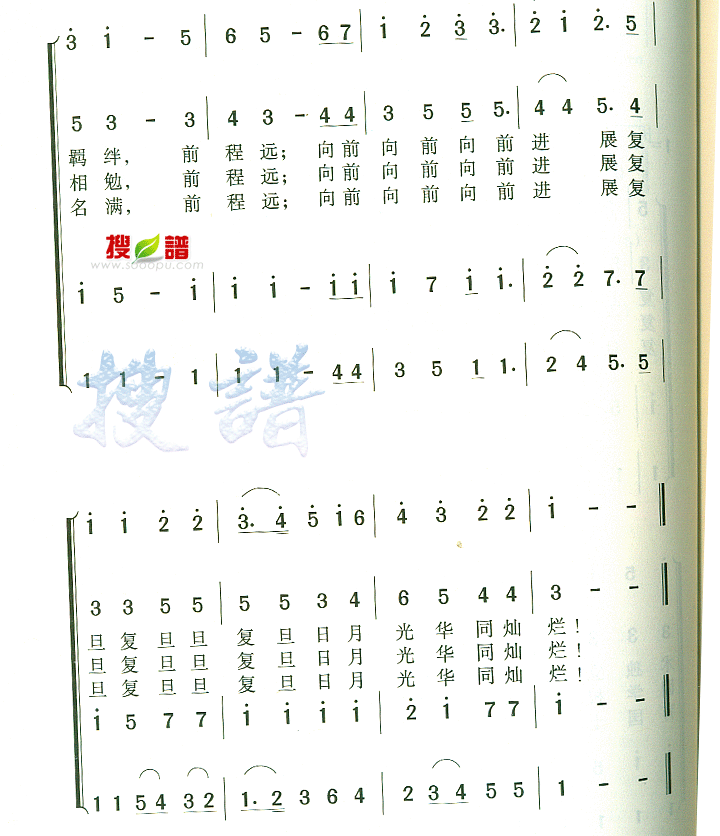 3 i - 5 | 6 5 - 6 7 | i 2 3 3. | 2 i 2. 5 |
5 3 - 3 | 4 3 - 4 4 | 3 5 5 5. | 4 4 5. 4 |
羁绊, 前 程 远; 向前 向 前 向 前 进 展复
相勉, 前 程 远; 向前 向 前 向 前 进 展复
名满, 前 程 远; 向前 向 前 向 前 进 展复
搜谱
www.sooopu.com
i 5 - i | i i - i i | i 7 i i. | 2 2 7. 7 |
1 1 - 1 | 1 1 - 4 4 | 3 5 1 1. | 2 4 5. 5 |
搜譜
i i 2 2 | 3. 4 5 i 6 | 4 3 2 2 | i - - ‖
3 3 5 5 | 5 5 3 4 | 6 5 4 4 | 3 - - ‖
旦 复 旦 旦 复 旦 日 月 光 华 同 灿 烂!
旦 复 旦 旦 复 旦 日 月 光 华 同 灿 烂!
旦 复 旦 旦 复 旦 日 月 光 华 同 灿 烂!
i 5 7 7 | i i i i | 2 i 7 7 | i - - ‖
1 1 5 4 3 2 | 1. 2 3 6 4 | 2 3 4 5 5 | 1 - - ‖